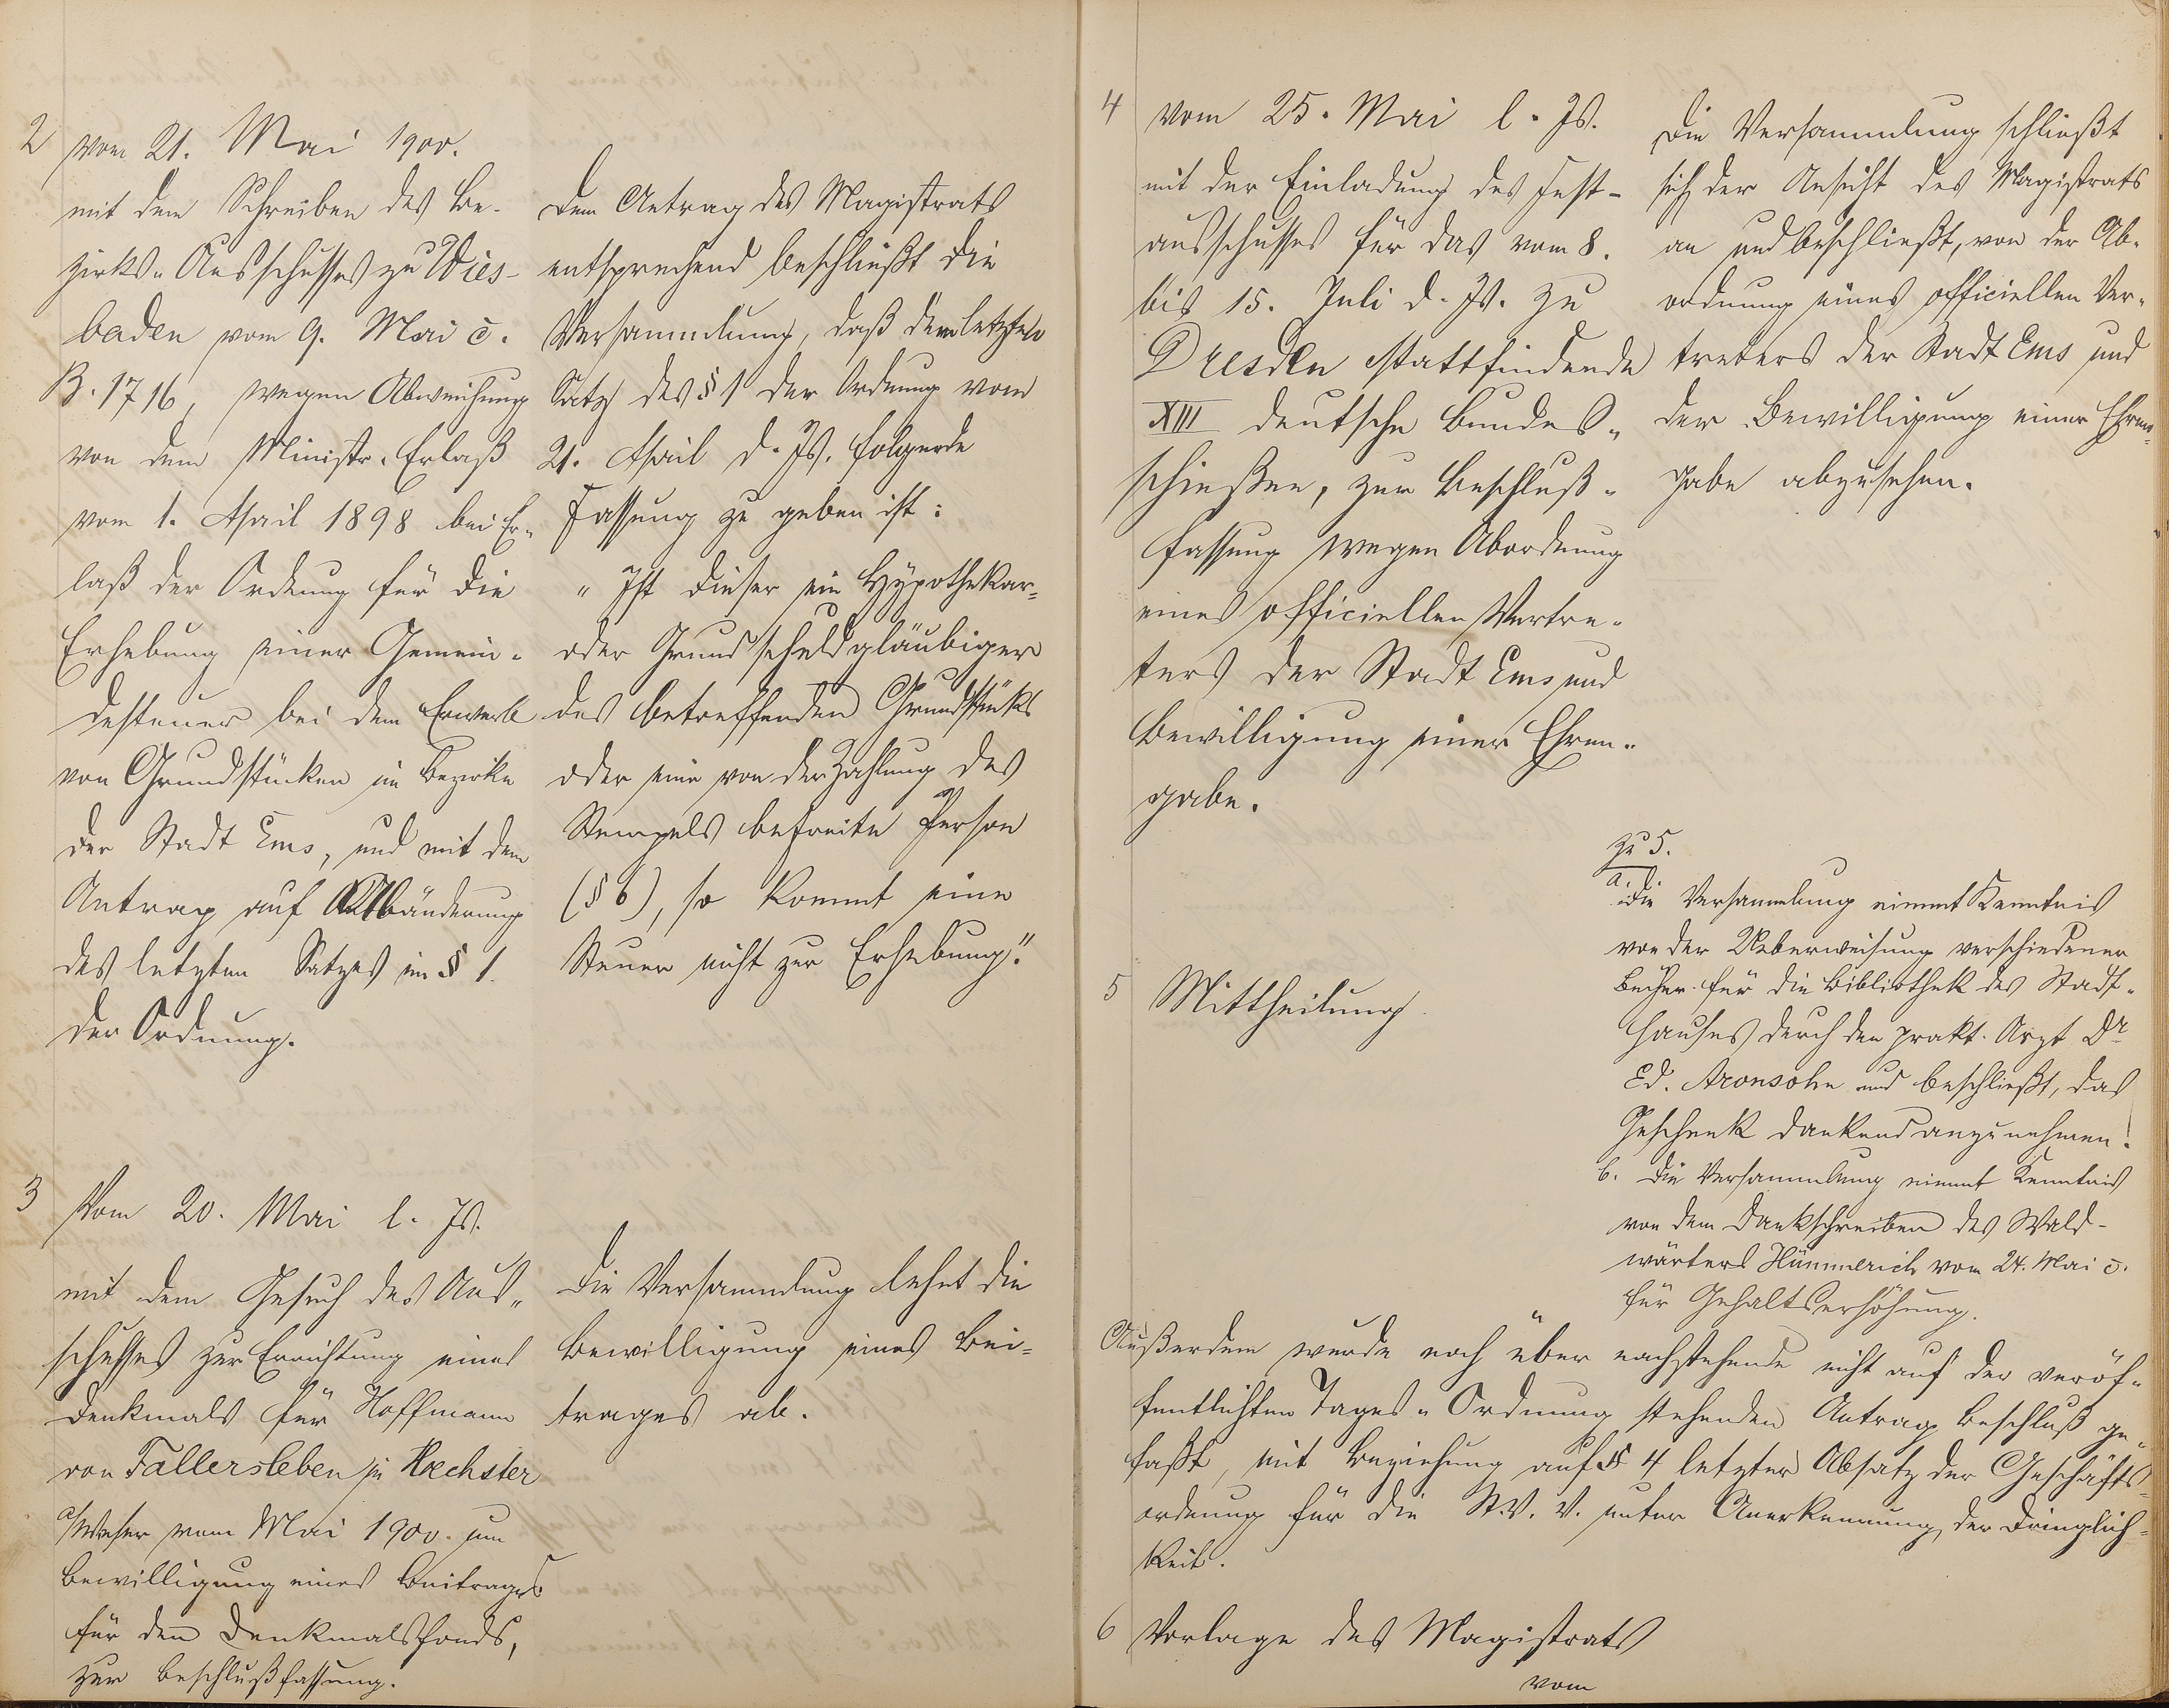 2
vom 21. Mai 1900.
mit dem Schreiben des Be-
zirks-Ausschusses zu Wies-
baden vom 9. Mai c.
B. 1716, wegen Abweichung
von dem Ministr. Erlaß
vom 1. April 1898 bei Er-
laß der Ordnung für die
Erhebung einer Gemein-
desteuer bei dem Erwerb
von Grundstücken im Bezirke
der Stadt Ems, und mit dem
Antrag auf Abänderung
des letzten Satzes im § 1.
der Ordnung.
Dem Antrag des Magistrats
entsprechend beschließt die
Versammlung, daß dem letzten
Satz des § 1 der Ordnung vom
21. April d. Js. folgende
Fassung zu geben ist:
"Ist dieser ein Hypothekar-
oder Grundschuldgläubiger
des betreffenden Grundstücks
oder eine von der Zahlung des
Stempels befreite Person
(§ 6), so kommt eine
Steuer nicht zur Erhebung."
3
Vom 20. Mai l. Js.
mit dem Gesuch des Aus-
schusses zur Errichtung eines
Denkmals für Hoffmann
von Fallersleben in Hoechster
a/Weser vom Mai 1900. um
Bewilligung eines Beitrages
für den Denkmalsfonds,
zur Beschlußfassung.
Die Versammlung lehnt die
Bewilligung eines Bei-
trages ab.
4
vom 25. Mai l. Js.
mit der Einladung des Fest-
ausschusses für das vom 8.
bis 15. Juli d. Js. zu
Dresden stattfindende
XIII deutsche Bundes-
schießen, zur Beschluß-
fassung wegen Abordnung
eines officiellen Vertre-
ters der Stadt Ems und
Bewilligung einer Ehren-
gabe.
Die Versammlung schließt
sich der Ansicht des Magistrats
an und beschließt, von der Ab-
ordnung eines officiellen Ver-
treters der Stadt Ems und
der Bewilligung einer Ehren-
gabe abzusehen.
5
Mittheilung
zu 5.
a. Die Versammlung nimmt Kenntnis
von der Ueberweisung verschiedener
Bücher für die Bibliothek des Stadt-
hauses durch den prakt. Arzt Dr
Ed. Aronsohn und beschließt, das
Geschenk dankend anzunehmen.
b. Die Versammlung nimmt Kenntnis
von dem Dankschreiben des Wald-
wärters Hümmerich vom 24. Mai c.
für Gehaltserhöhung.
Außerdem wurde noch über nachstehende nicht auf der veröf-
fentlichten Tages-Ordnung stehenden Antrag Beschluß ge-
faßt, mit Beziehung auf § 4 letzter Absatz der Geschäfts-
ordnung für die St. V. V. unter Anerkennung der Dringlich-
keit.
6
Vorlage des Magistrats
vom